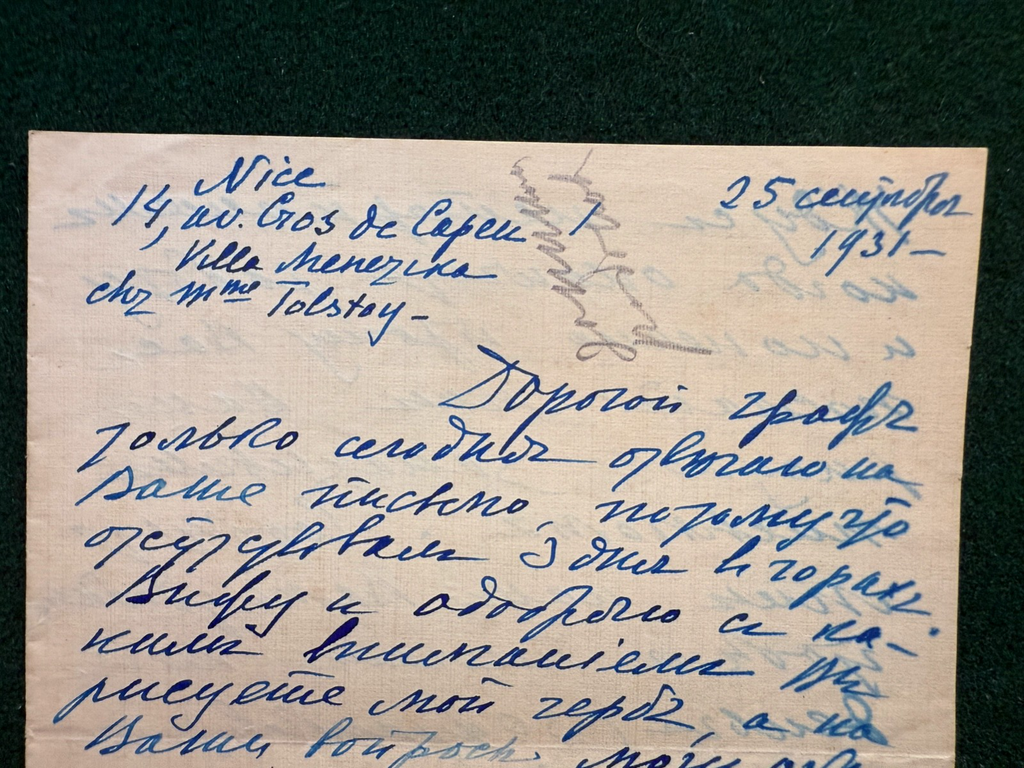 Nice
14, av. Cros de Capeu
Villa
chez Mme Tolstoy –
25 сентября
1931 –
Дорогой графъ
только сегодня отвѣчаю на
Ваше письмо, потому что
отсутствовалъ 3 дня въ горахъ.
Вижу и одобряю съ ка-
кимъ вниманіемъ Вы
рисуете мой гербъ, а на
Ваши вопросы